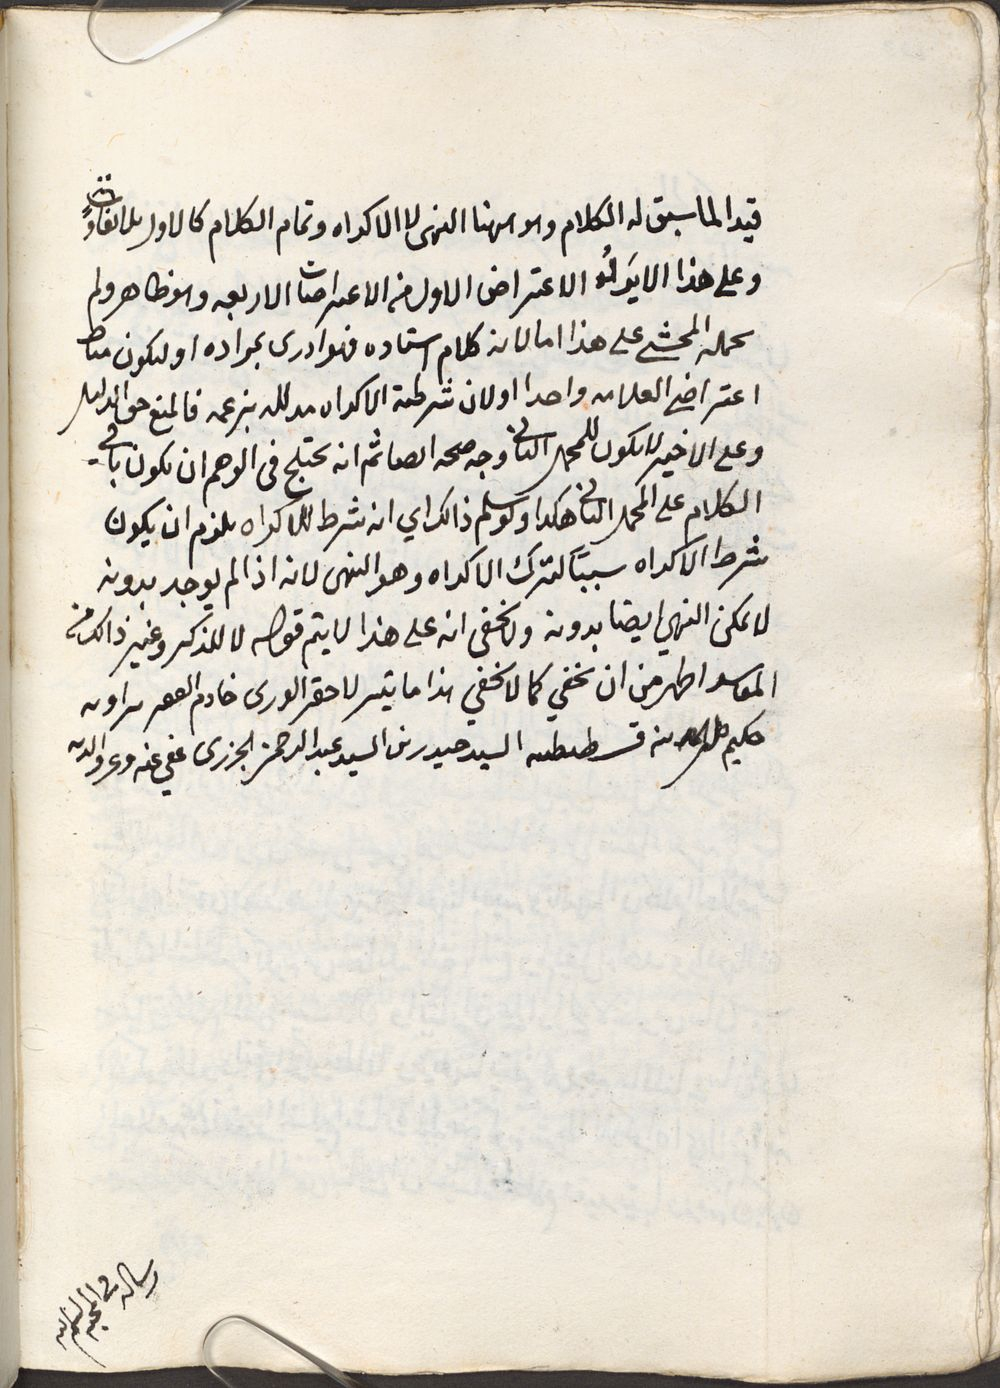 قيدا لما سبق له الكلام وهو ههنا النهي لا الاكراه وتمام الكلام كالاول بلا تفاوت
وعلى هذا لا يَرِدُ الاعتراض الاول من الاعتراضات الاربعه وهو ظاهر ولم
يحمله المحشي على هذا اما لانه كلام استاده فهو ادرى بمراده او ليكون
اعتراض العلامه واحدا او لان شرطية الاكراه مدلله بزعمه فالمنع حق الدليل
وعلى الاخير لا يكون للمحمل الثاني وجه صحه ايضا ثم انه يختلج في الوهم ان يكون باقي
الكلام على المحمل الثاني هكذا ولو سلم ذالك اي انه شرط للاكراه يلزم ان يكون
شرط الاكراه سببًا لترك الاكراه وهو النهي لانه اذا لم يوجد بدونه
لا يمكن النهي ايضا بدونه ولا يخفى انه على هذا لا يتم قوله لا للذكر وغير ذالك من
المفاسد اظهر من ان يخفي كما لا يخفي هذا ما تيسر لاحقر الورى خادم الفقراء
حكيم قسطنطنيه السيد حيدر بن السيد عبد الرحمن الجزرى عفي عنه وعن والديه
رساله في